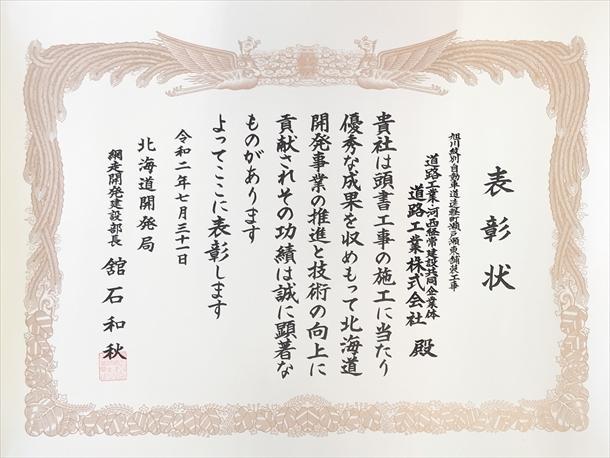 表彰状
旭川紋別自動車道遠軽町瀬戸瀬東舗装工事
道路工業・河西経常建設共同企業体
道路工業株式会社 殿
貴社は頭書工事の施工に当たり
優秀な成果を収めもって北海道
開発事業の推進と技術の向上に
貢献されその功績は誠に顕著な
ものがあります
よってここに表彰します
令和二年七月三十一日
北海道開発局
網走開発建設部長 舘石和秋